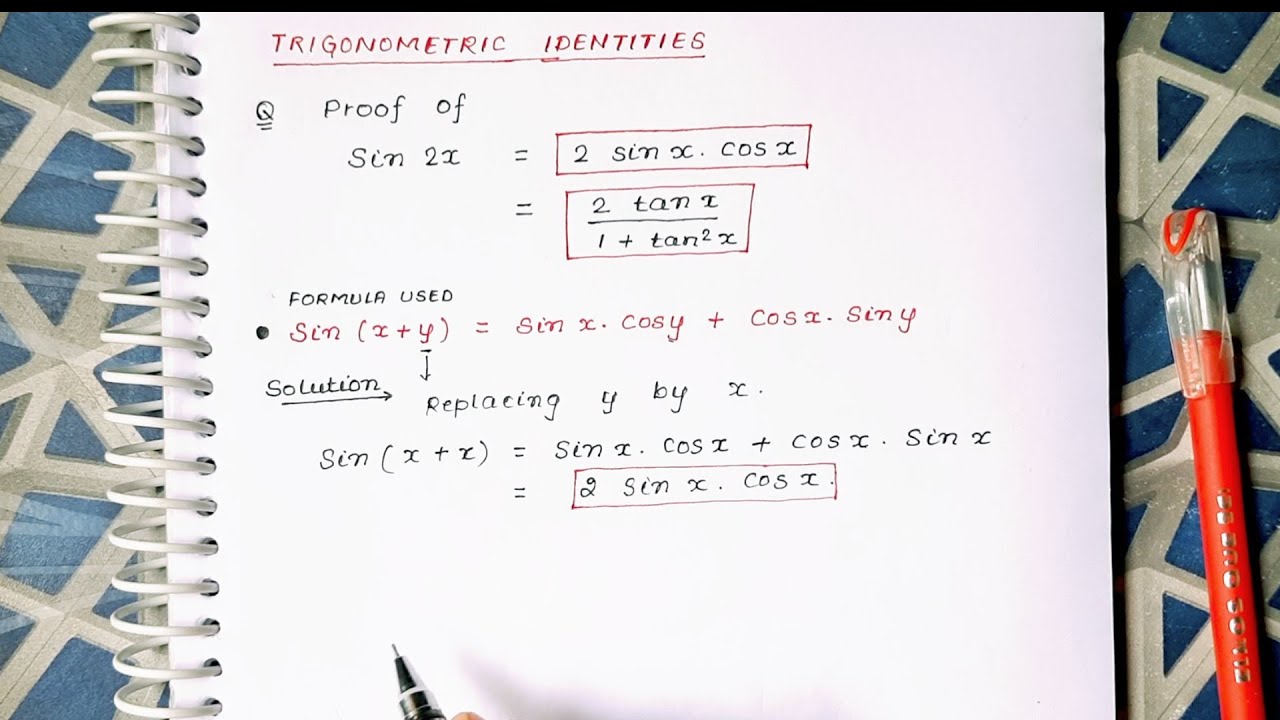 TRIGONOMETRIC IDENTITIES
Q Proof of
Sin 2x = 2 sin x . cos x
= 2 tan x / 1 + tan² x
FORMULA USED
• Sin (x + y) = Sin x . Cos y + Cos x . Sin y
↓
Solution → Replacing y by x .
Sin ( x + x ) = Sin x . Cos x + Cos x . Sin x
= 2 Sin x . Cos x .